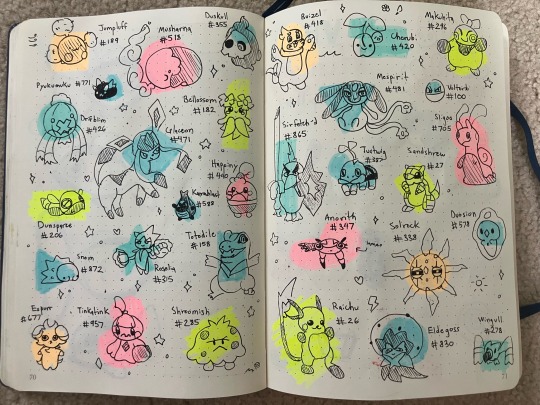 Jumpluff
#189
Musharna
#518
Duskull
#355
Pyukumuku #771
Drifblim
#426
Bellossom
#182
Glaceon
#471
Happiny
#440
Karrablast
#588
Dunsparce
#206
Snom
#872
Roselia
#315
Totodile
#158
Espurr
#677
Tinkatink
#957
Shroomish
#285
20
Buizel
#418
Cherubi
#420
Makuhita
#296
Mespirit
#481
Voltorb
#100
Sirfetch'd
#865
Turtwig
#387
Sandshrew
#27
Sligoo
#705
Anorith
#347
Solrock
#338
Duosion
#578
Raichu
#26
Eldegoss
#830
Wingull
#278
21